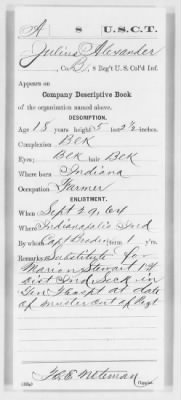 A | 8 | U.S.C.T.
Julius Alexander
, Co. B, 8 Reg't U. S. Col'd Inf.
Appears on
Company Descriptive Book
of the organization named above.
DESCRIPTION.
Age 18 years; height 5 feet 2½ inches.
Complexion Blk
Eyes Blk; hair Blk
Where born Indiana
Occupation Farmer
ENLISTMENT.
When Sept 29, 64
Where Indianapolis Ind
By whom Capt; term y'rs.
Remarks: Substitute for
Marion Stewart 1st
Dist Ind. Sick in
Gen Hospt at date
of muster out of Regt
(383g) Copyist.